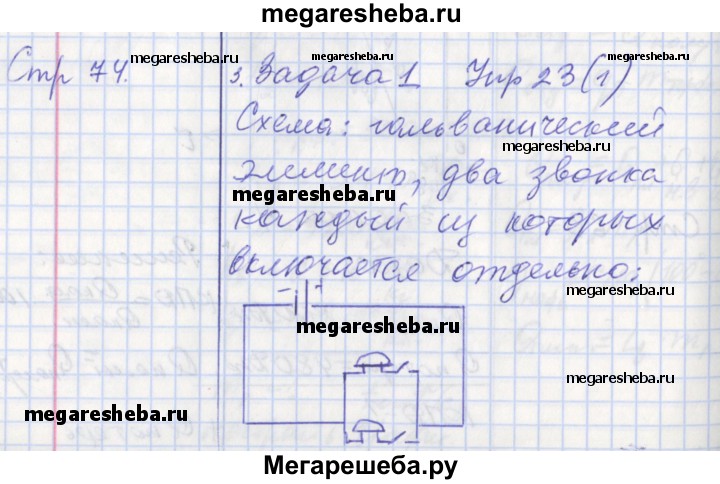 megaresheba.ru
Стр 74.
3. Задача 1 Упр 23 (1)
megaresheba.ru
megaresheba.ru
megaresheba.ru
Схема: гальванический
megaresheba.ru
элемент, два звонка
megaresheba.ru
каждый из которых
включается отдельно:
megaresheba.ru
- +
megaresheba.ru
megaresheba.ru
megaresheba.ru
Мегарешеба.ру